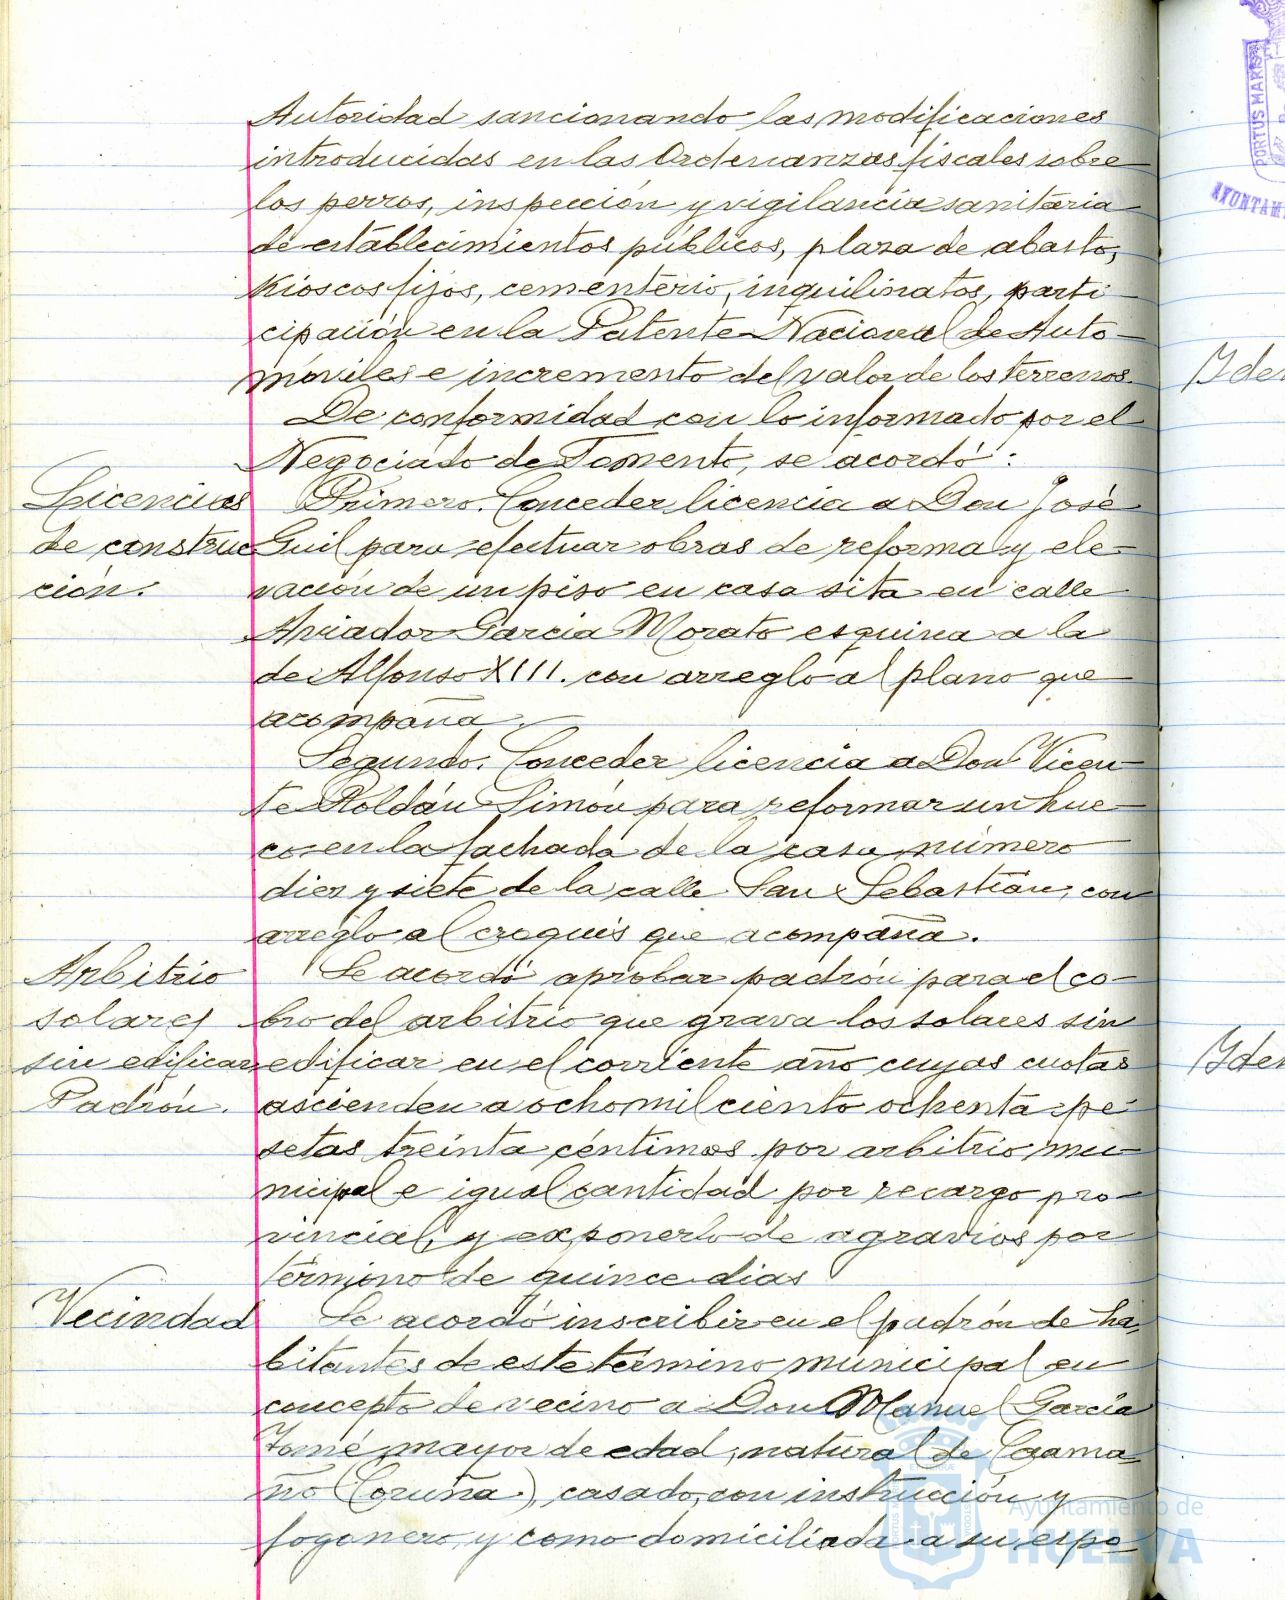 Autoridad sancionando las modificaciones
introducidas en las Ordenanzas fiscales sobre
los perros, inspección y vigilancia sanitaria
de establecimientos públicos, plaza de abasto,
Kioscos fijos, cementerio, inquilinatos, parti-
cipación en la Patente Nacional de Auto-
móviles e incremento del valor de los terrenos.
De conformidad con lo informado por el
Negociado de Fomento, se acordó:
Licencias
de construc
ción.
Primero. Conceder licencia a Don José
Guil para efectuar obras de reforma y ele-
vación de un piso en casa sita en calle
Aviador García Morato esquina a la
de Alfonso XIII. con arreglo al plano que
acompaña.
Segundo. Conceder licencia a Don Vicen-
te Roldán Simón para reformar un hue-
co en la fachada de la casa número
diez y siete de la calle San Sebastián, con
arreglo al croquis que acompaña.
Arbitrio
solares
sin edificar
Padrón.
Se acordó aprobar padrón para el co-
bro del arbitrio que grava los solares sin
edificar en el corriente año cuyas cuotas
ascienden a ocho mil ciento ochenta pe-
setas treinta céntimos por arbitrio mu-
nicipal e igual cantidad por recargo pro-
vincial, y exponerlo de agravios por
término de quince dias
Vecindad
Se acordó inscribir en el padrón de ha-
bitantes de este término municipal en
concepto de vecino a Don Manuel García
Tomé, mayor de edad, natural de Caama-
ño (Coruña), casado, con instrucción y
fogonero, y como domiciliada a su espo-
Iden
Iden
PORTUS MARIS
AYUNTAM
Ayuntamiento de
HUELVA